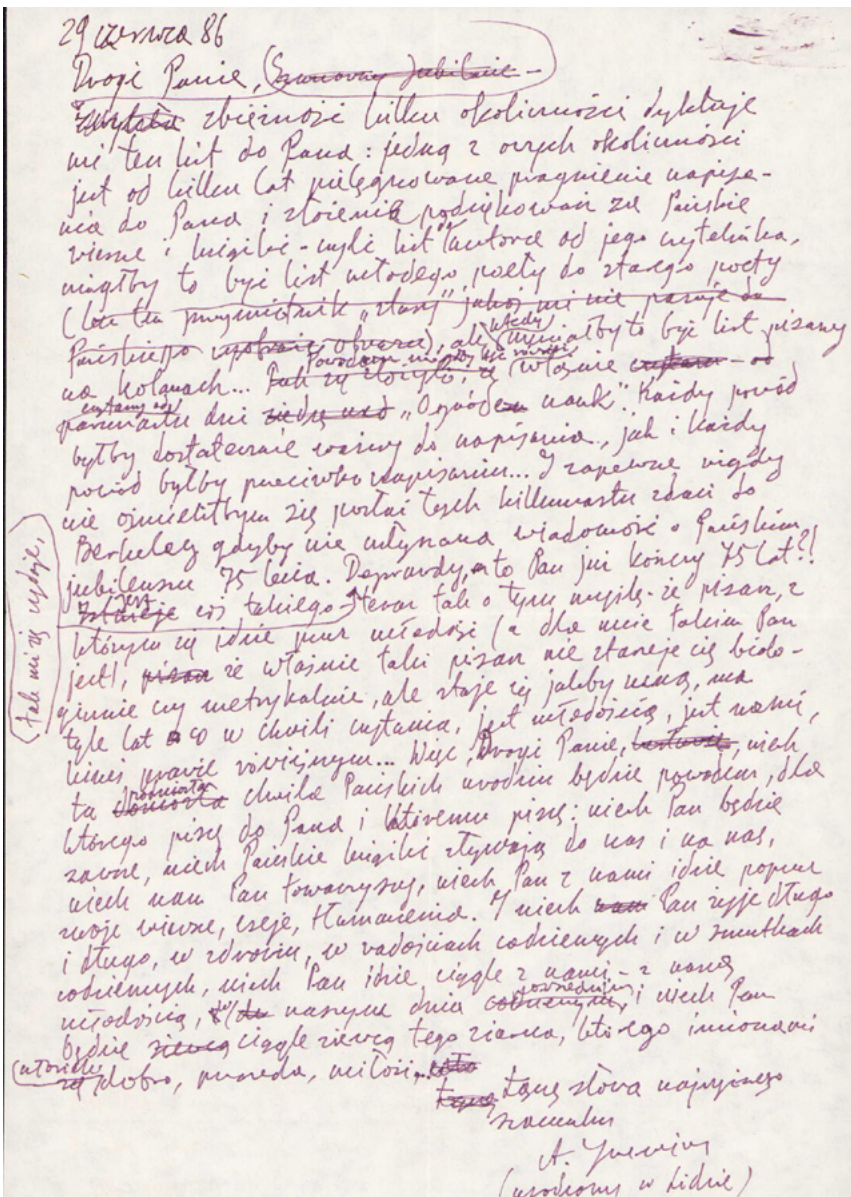 29 czerwca 86
Drogi Panie, Szanowny Jubilacie -
zbieżność kilku okoliczności dyktuje
mi ten list do Pana: jedną z owych okoliczności
jest od kilku lat pielęgnowane pragnienie napisa-
nia do Pana i złożenia podziękowań za Pańskie
wiersze i książki - czyli list autora od jego czytelnika,
mógłby to być list młodego poety do starego poety
(lecz ten przymiotnik „stary" jakoś mi nie pasuje do
Pańskiego), ale wtedy musiałby to być list pisany
na kolanach... Tak się złożyło, że właśnie
czytamy od
paru dni „Ogród nauk". Każdy powód
byłby dostatecznie ważny do napisania, jak i każdy
powód byłby przeciwko napisaniu... I zapewne nigdy
nie ośmieliłbym się posłać tych kilkunastu zdań do
Berkeley gdyby nie usłyszana wiadomość o Pańskim
jubileuszu 75 lecia. Doprawdy, to Pan już kończy 75 lat?!
jest coś takiego - teraz tak o tym myślę - że pisarz, z
tak mi się wydaje,
którym się idzie przez młodość (a dla mnie takim Pan
jest), pisarz że właśnie taki pisarz nie starzeje się biolo-
gicznie czy metrykalnie, ale staje się jakby nami, ma
tyle lat co w chwili czytania, jest młodością, jest nami,
kimś prawie rówieśnym... Więc, Drogi Panie, niech
ta podniosła chwila Pańskich urodzin będzie powodem, dla
którego piszę do Pana i któremu piszę: niech Pan będzie
zawsze, niech Pańskie książki spływają do nas i na nas,
niech nam Pan towarzyszy, niech Pan z nami idzie poprzez
swoje wiersze, eseje, tłumaczenia. I niech nam Pan żyje długo
i długo, w zdrowiu, w radościach codziennych i w smutkach
codziennych, niech Pan idzie ciągle z nami - z naszą
młodością, w naszym dniu powszednim, i niech Pan
będzie siewcą ciągle siewcą tego ziarna, którego imionami
są dobro, prawda, miłość...
łączę słowa najwyższego
szacunku
A.
(urodzony w Lidzie)